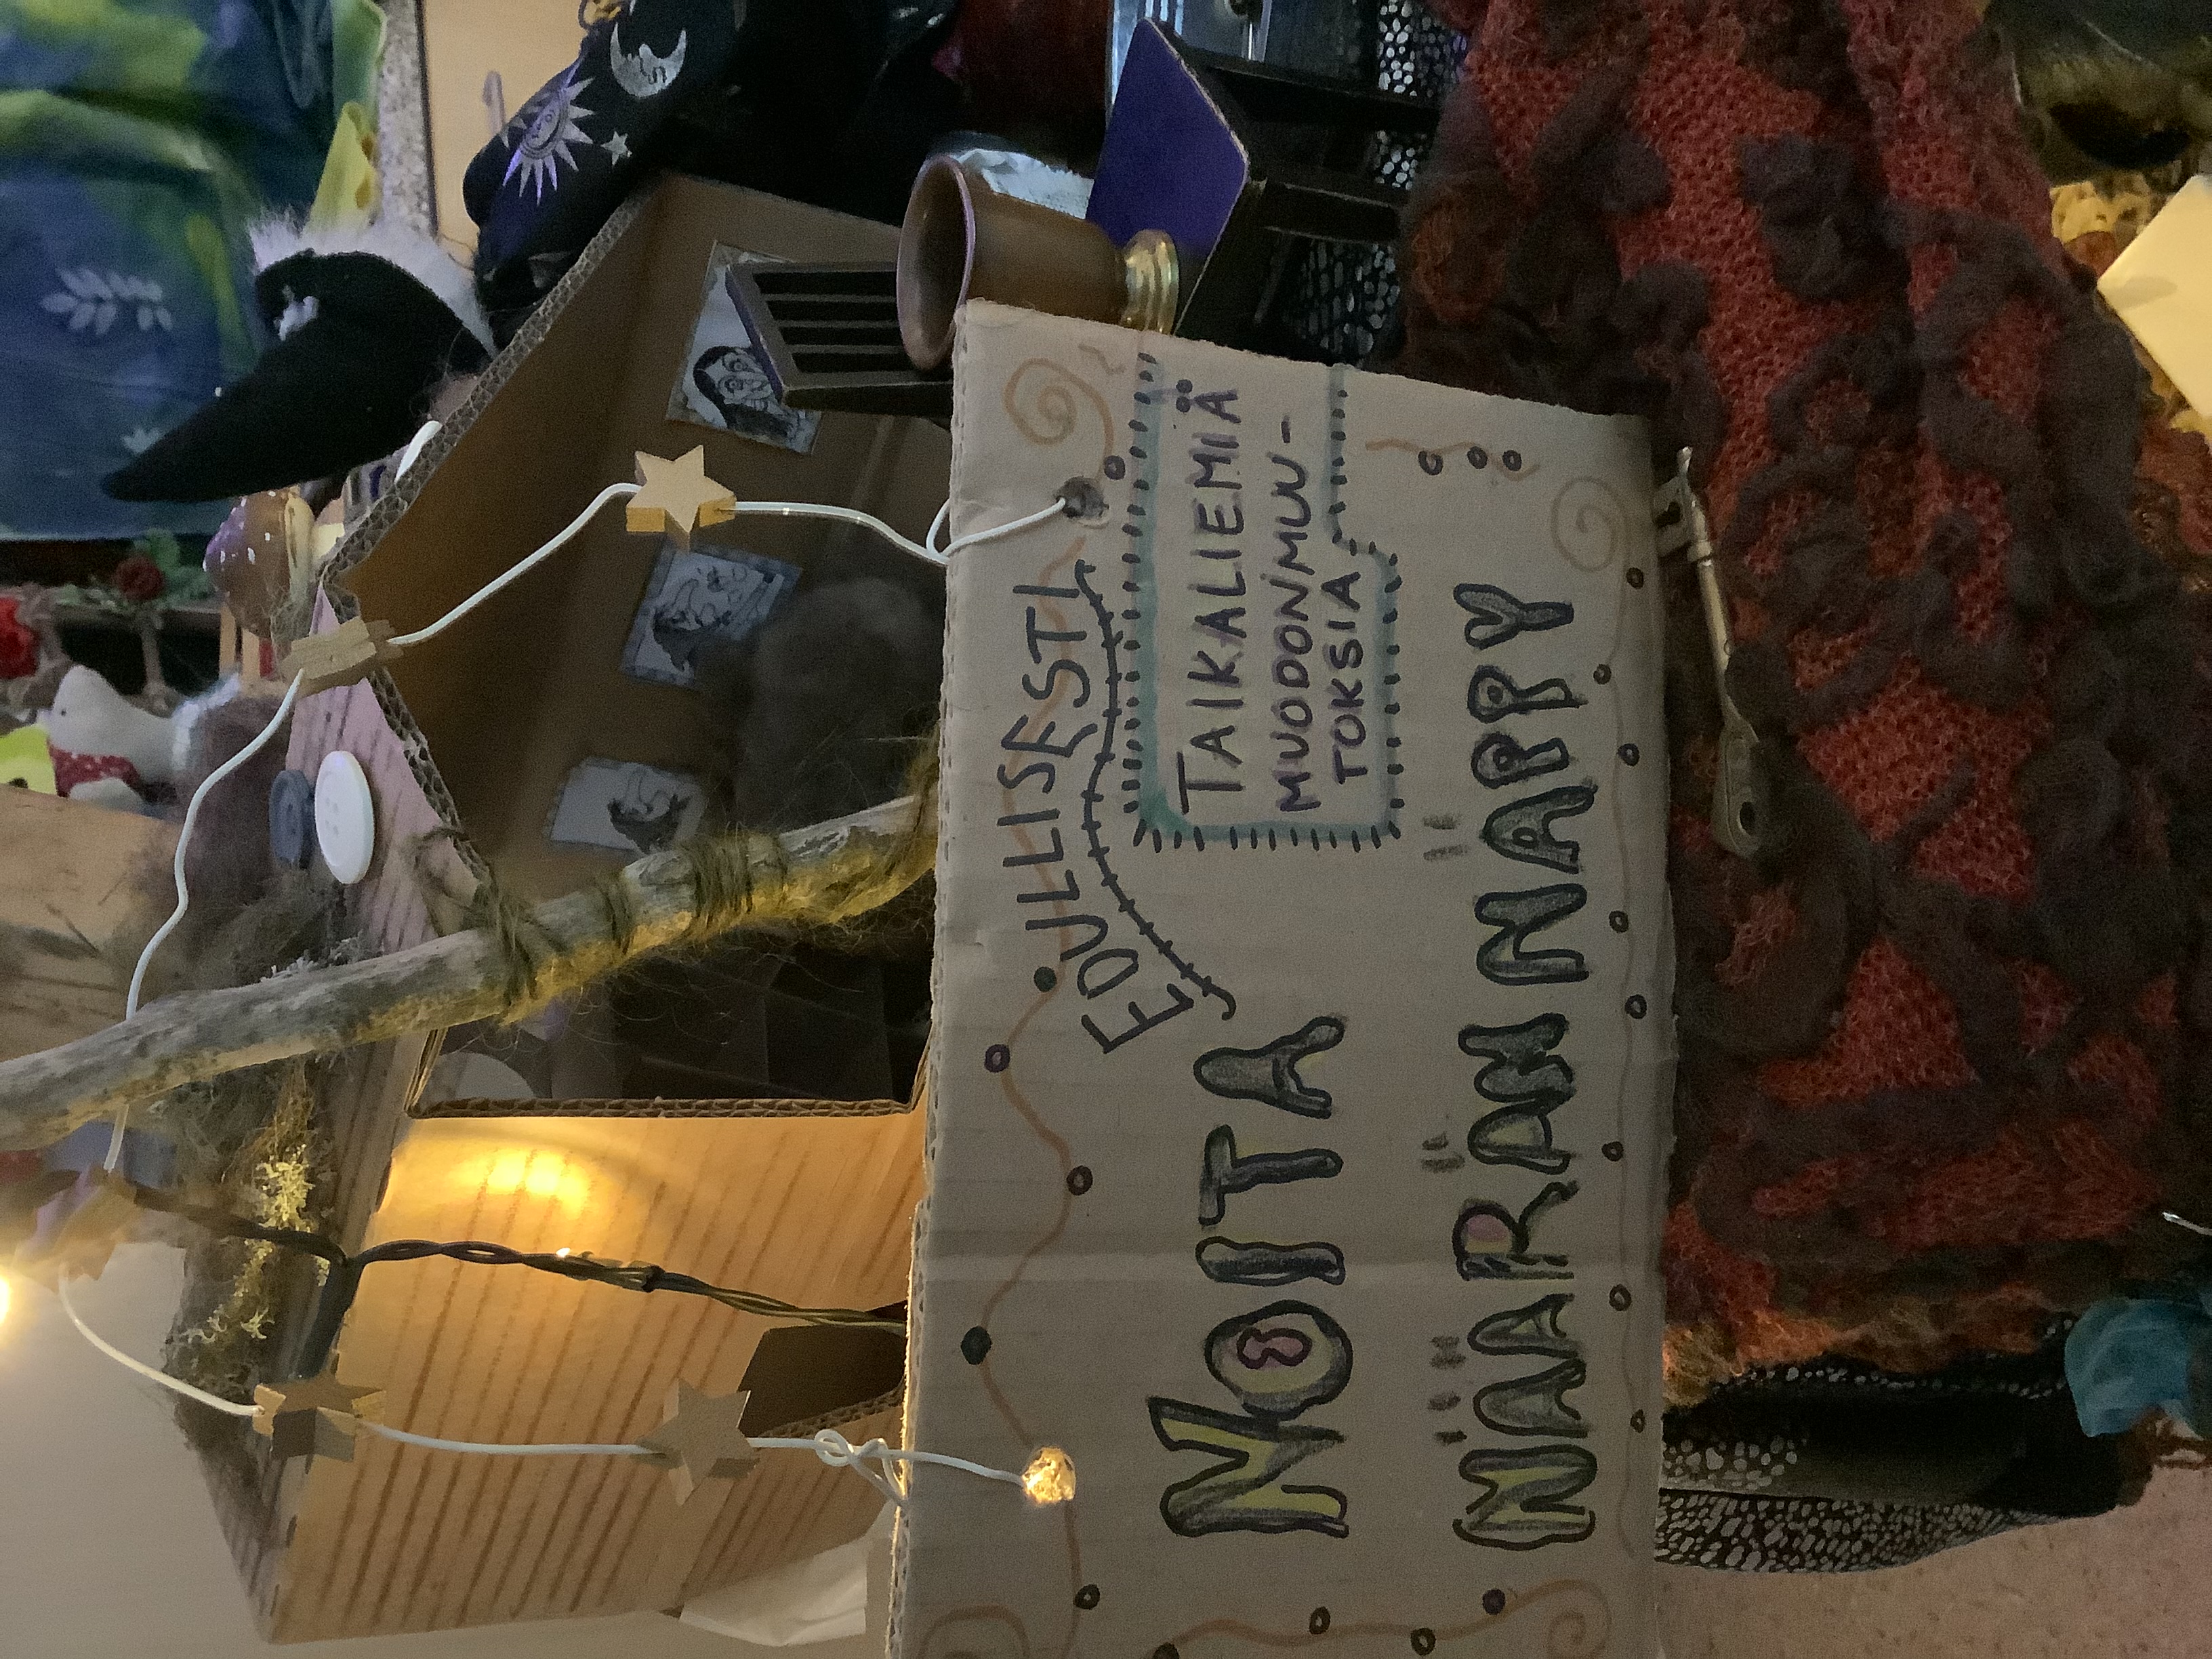 EDULLISESTI
TAIKALIEMIÄ
MUODONMUU-
TOKSIA
NOITA
NÄÄRÄNNÄPPY